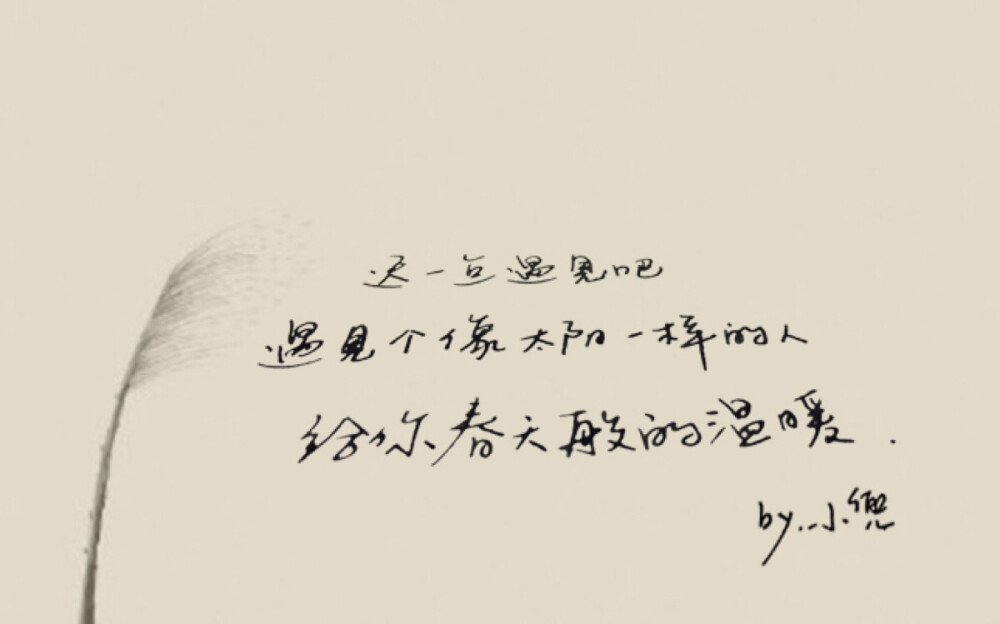 迟一点遇见吧
遇見个像太阳一样的人
给你春天般的温暖.
by.小